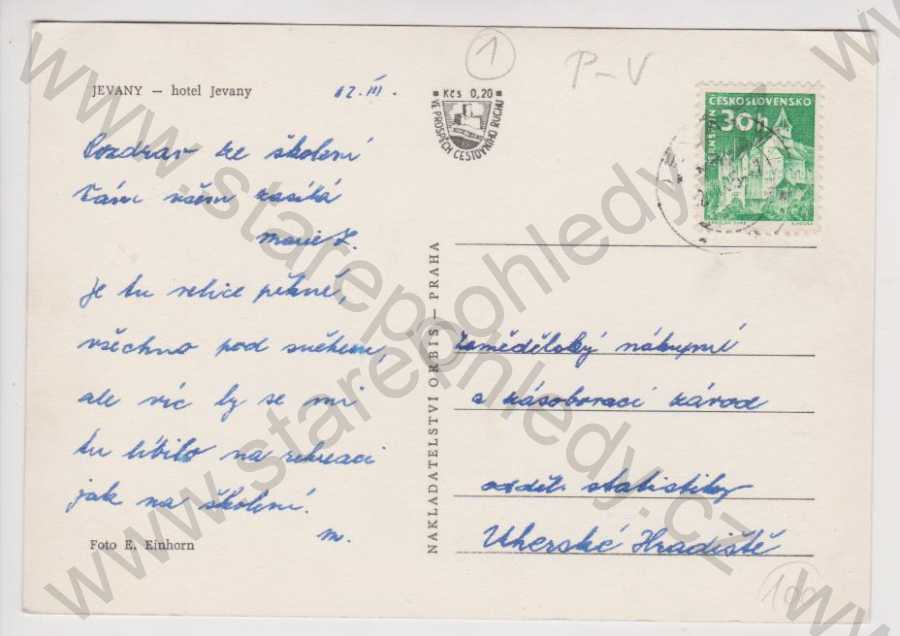 JEVANY – hotel Jevany
12. III.
Pozdrav ze školení
Vám všem zasílá
Marie Z.
Je tu velice pěkně,
všechno pod sněhem,
ale víc by se mi
tu líbilo na rekreaci
jak na školení.
M.
Foto E. Einhorn
1
P-V
Kčs 0,20
VE PROSPĚCH CESTOVNÍHO RUCHU
NAKLADATELSTVÍ ORBIS – PRAHA
ČESKOSLOVENSKO
30h
PERNŠTEJN
Zemědělský nákupní
a zásobovací závod
odděl. statistiky
Uherské Hradiště
100
www.starepohledy.cz